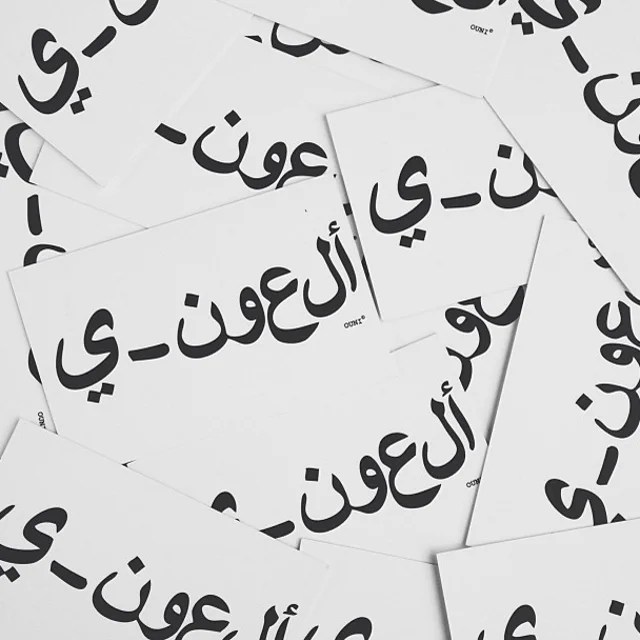 OUNI®
_ي
عون_
ن_ي
ألعون_ي
OUNI®
ألعون_ي
OUNI
عون_ي
ألعون_ي